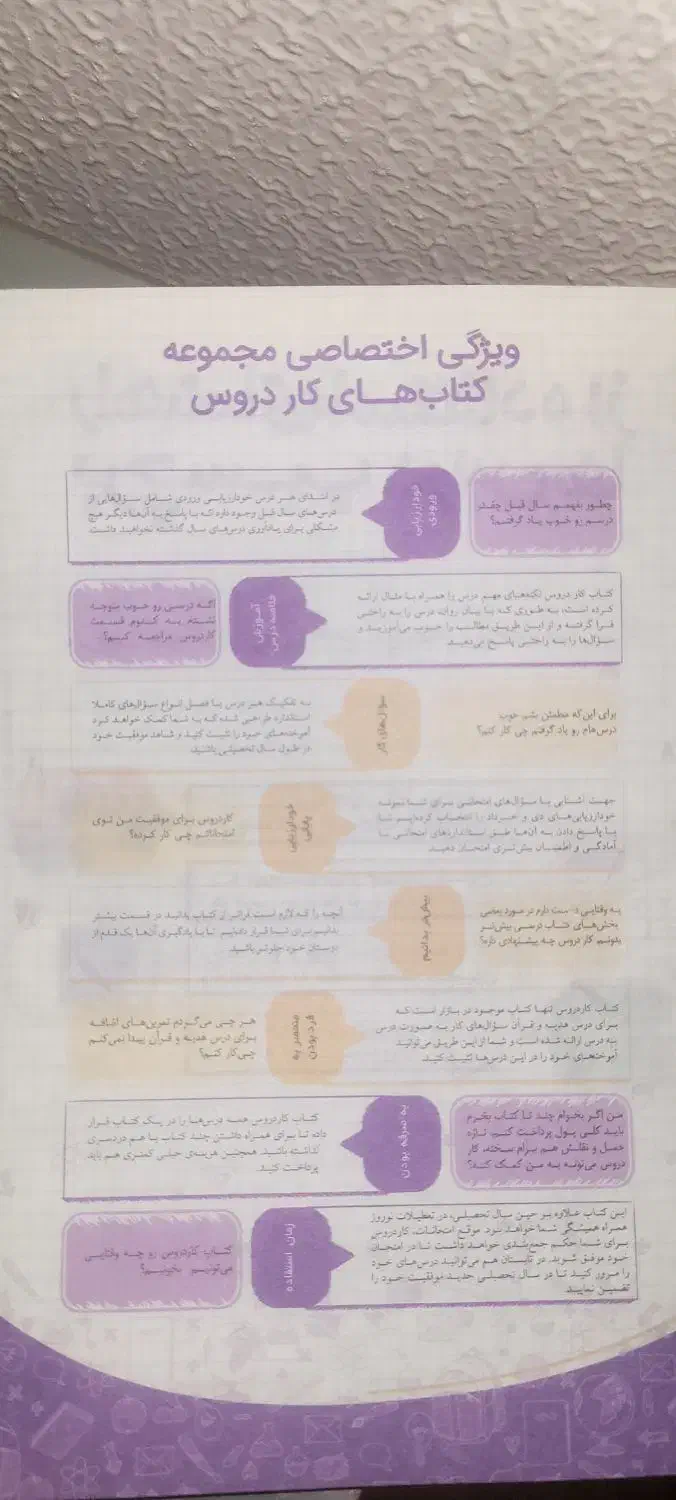 ویژگی اختصاصی مجموعه
کتاب‌هـــای کار دروس
چطور بفهمم سال قبل چقدر
درسم رو خوب یاد گرفتم؟
خودارزیابی
ورودی
در ابتدای هر درس خودارزیابی ورودی شامل سؤال‌هایی از
درس‌های سال قبل وجود دارد که با پاسخ به آن‌ها دیگر هیچ
مشکلی برای یادآوری درس‌های سال گذشته نخواهید داشت.
اگه درسی رو خوب متوجه
نشدم به کدوم قسمت
کاردروس مراجعه کنم؟
آموزش
خلاصه درس
کتاب کار دروس نکته‌های مهم درس را همراه با مثال ارائه
کرده است، به طوری که با بیان روان، درس را به راحتی
فرا گرفته و از این طریق مطالب را خوب می‌آموزید و
سؤال‌ها را به راحتی پاسخ می‌دهید.
برای این‌که مطمئن بشم خوب
درس‌هام رو یاد گرفتم چی کار کنم؟
سؤال‌های کار
به تفکیک هر درس یا فصل انواع سؤال‌های کاملا
استاندارد طراحی شده که به شما کمک خواهد کرد
آموخته‌های خود را تثبیت کنید و شاهد موفقیت خود
در طول سال تحصیلی باشید.
کاردروس برای موفقیت من توی
امتحاناتم چی کار کرده؟
خودارزیابی
پایانی
جهت آشنایی با سؤال‌های امتحانی برای شما نمونه
خودارزیابی‌های دی و خرداد را انتخاب کرده‌ایم تا
با پاسخ دادن به آن‌ها طبق استانداردهای امتحانی با
آمادگی و اطمینان بیش‌تری امتحان دهید.
یه وقتایی دوست دارم در مورد بعضی
بخش‌های کتاب درسی بیش‌تر
بدونم، کار دروس چه پیشنهادی داره؟
بیش‌تر بدانیم
آنچه را که لازم است فراتر از کتاب بدانید در قسمت بیشتر
بدانیم برای شما قرار داده‌ایم تا با یادگیری آن‌ها یک قدم از
دوستان خود جلوتر باشید.
هر چی می‌گردم تمرین‌های اضافه
برای درس هدیه و قرآن پیدا نمی‌کنم
چی‌کار کنم؟
منحصر به
فرد بودن
کتاب کاردروس تنها کتاب موجود در بازار است که
برای درس هدیه و قرآن سؤال‌های کار به صورت درس
به درس ارائه شده است و شما از این طریق می‌توانید
آموخته‌های خود را در این درس‌ها تثبیت کنید.
من اگر بخوام چند تا کتاب بخرم
باید کلی پول پرداخت کنم، تازه
حمل و نقلش هم برام سخته، کار
دروس می‌تونه به من کمک کنه؟
به صرفه بودن
کتاب کاردروس همه درس‌ها را در یک کتاب قرار
داده تا برای همراه داشتن چند کتاب با هم دردسری
نداشته باشید. همچنین هزینه‌ی خیلی کمتری هم باید
پرداخت کنید.
کتاب کاردروس رو چه وقتایی
می‌تونیم بخونیم؟
زمان استفاده
این کتاب علاوه بر حین سال تحصیلی، در تعطیلات نوروز
همراه همیشگی شما خواهد بود. موقع امتحانات، کاردروس
برای شما حکم جمع‌بندی خواهد داشت تا در امتحان
خود موفق شوید. در تابستان هم می‌توانید درس‌های خود
را مرور کنید تا در سال تحصیلی جدید موفقیت خود را
تضمین نمایید.